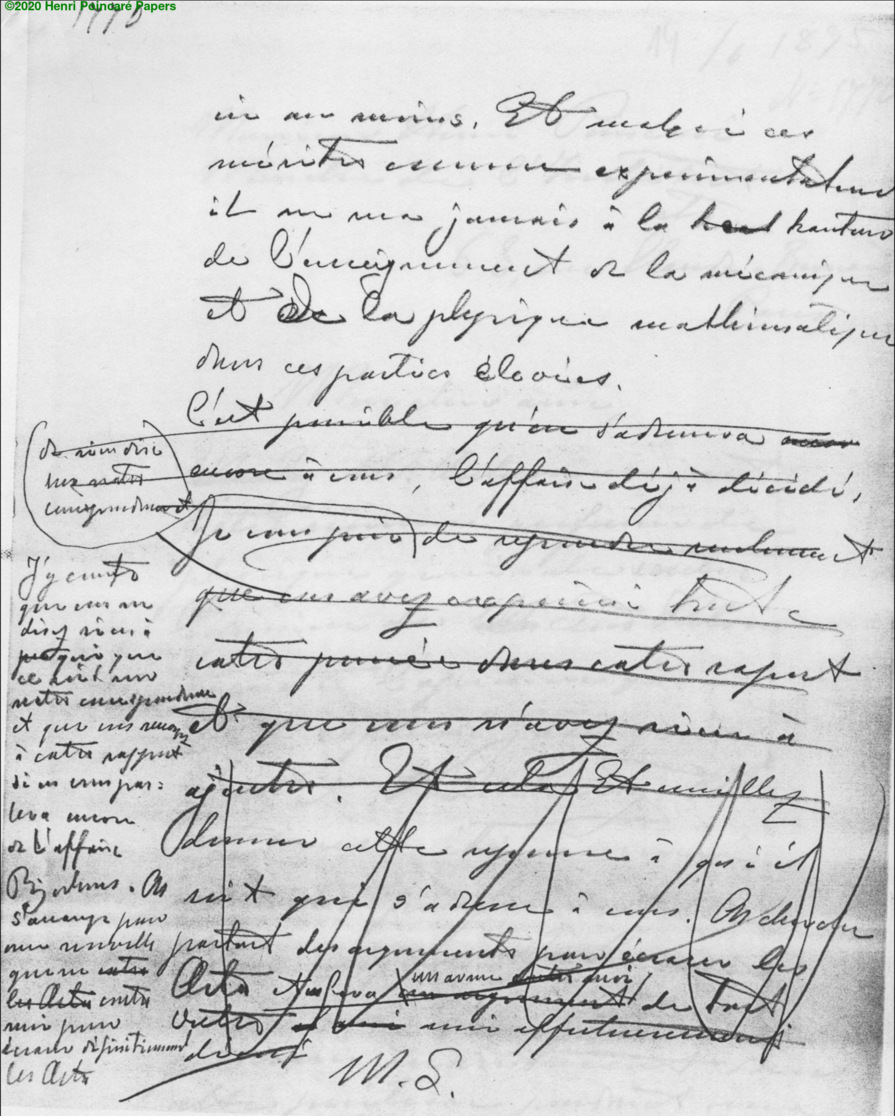 ©2020 Henri Poincaré Papers
au moins. Et malgré ces
mérites comme expérimentateur
il ne jamais à la haut hauteur
de l'enseignement de la mécanique
et de la physique mathématique
dans ces parties élevées.
C'est possible qu'on s'adressera
encore à vous, l'affaire déjà décidé,
Je vous prie de repondre seulement
que vous avez exprimé toute
votre pensée dans votre raport
et que vous n'avez rien à
ajouter. Et Et veuillez
donner cette reponse à qui il
soit qui s'adresse à vous. On cherche
partout des arguments pour écraser les
Acta et fera une arme de tout
M. L.
de rien dire
sur notre
correspondance
J'y compte
que vous ne
disez rien à
que
ce soit sur
notre correspondance
et que vous
à votre rapport
si on vous par-
lera encore
de l'affaire
Bjerknes. On
s'arrange pour
une nouvelle
guerre
les Acta contre
moi pour
écraser définitivement
les Acta